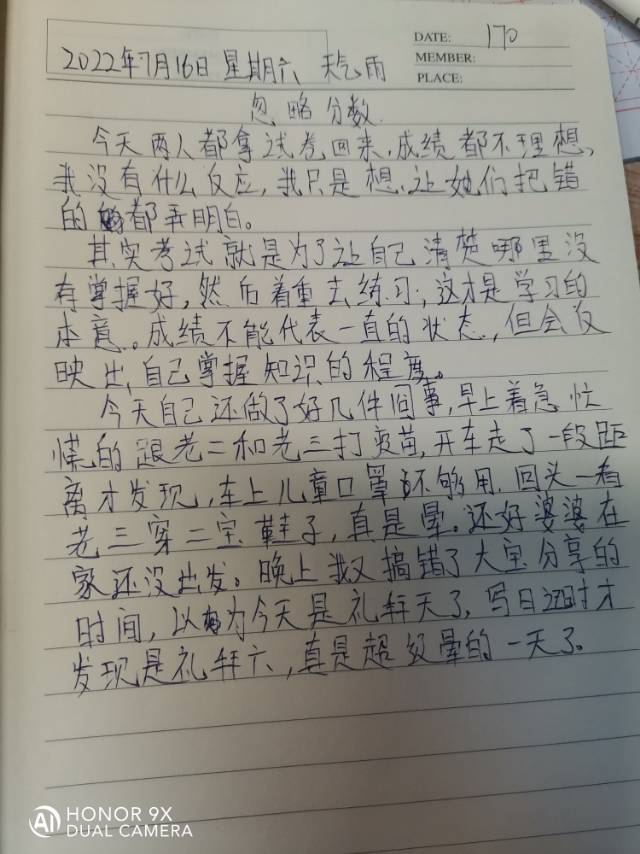 DATE: 170
MEMBER:
PLACE:
2022年7月16日 星期六 天气雨
忽略分数
今天两人都拿试卷回来,成绩都不理想,
我没有什么反应,我只是想,让她们把错
的都弄明白。
其实考试就是为了让自己清楚哪里没
有掌握好,然后着重去练习,这才是学习的
本意。成绩不能代表一直的状态,但会反
映出自己掌握知识的程度。
今天自己还做了好几件间事,早上着急忙
慌的跟老二和老三打疫苗,开车走了一段距
离才发现,车上儿童口罩不够用.回头一看
老三穿二宝鞋子,真是晕。还好婆婆在
家还没出发。晚上我又搞错了大宝分享的
时间,以为今天是礼拜天了,写日记时才
发现是礼拜六,真是超级晕的一天了。
AI HONOR 9X
DUAL CAMERA